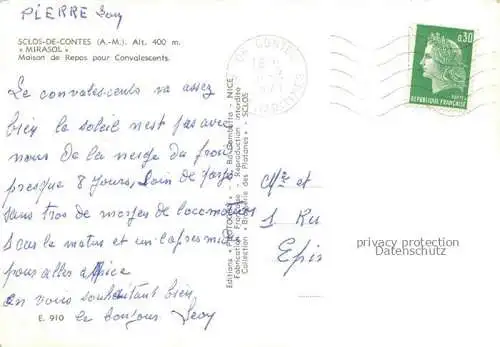 PIERRE
SCLOS-DE-CONTES (A.-M.). Alt. 400 m.
« MIRASOL »
Maison de Repos pour Convalescents.
Le convalescents va assez
bien le soleil nest pas avec
nous de la neige du froi
presque 8 jours, soin de
sans trop de de
1 sur le matin et un
pour aller a nice
en vous souhaitant bien
le bonjour
E. 910
Editions « » - Bd Gambetta - NICE
Fabrication Française - Reproduction interdite
Collection « des Platanes » - SCLOS
DE CONTES
0,30
REPUBLIQUE FRANÇAISE
Mr et
1 Ru
Epi
privacy protection
Datenschutz